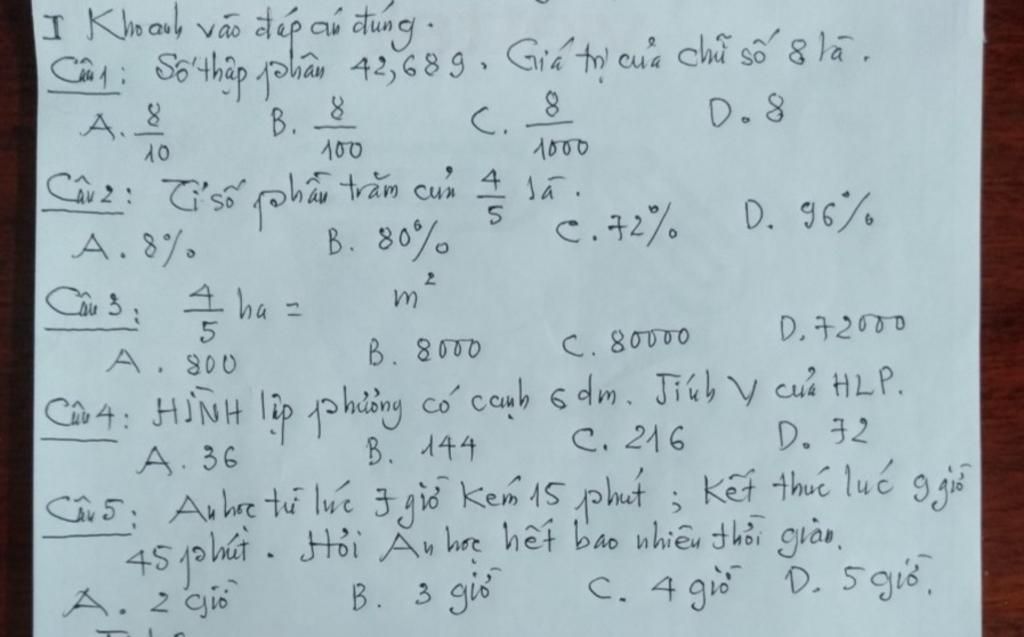 I Khoanh vào đáp án đúng.
Câu 1: Số thập phân 42,689. Giá trị của chữ số 8 là.
A. 8/10 B. 8/100 C. 8/1000 D. 8
Câu 2: Tỉ số phần trăm của 4/5 là.
A. 8% B. 80% C. 72% D. 96%
Câu 3: 4/5 ha = m²
A. 800 B. 8000 C. 80000 D. 72000
Câu 4: HÌNH lập phưởng có cạnh 6 dm. Tính V của HLP.
A. 36 B. 144 C. 216 D. 72
Câu 5: An học từ lúc 7 giờ kém 15 phút; Kết thúc lúc 9 giờ
45 phút. Hỏi An học hết bao nhiêu thời gian.
A. 2 giờ B. 3 giờ C. 4 giờ D. 5 giờ.